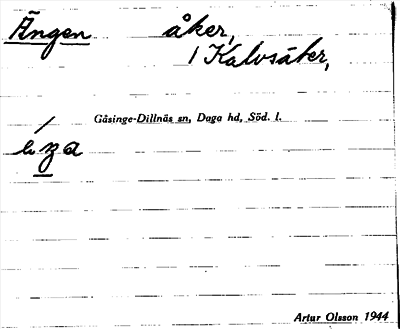 Ängen åker,
1 Kalvsäter,
Gåsinge-Dillnäs sn, Daga hd, Söd. l.
Artur Olsson 1944